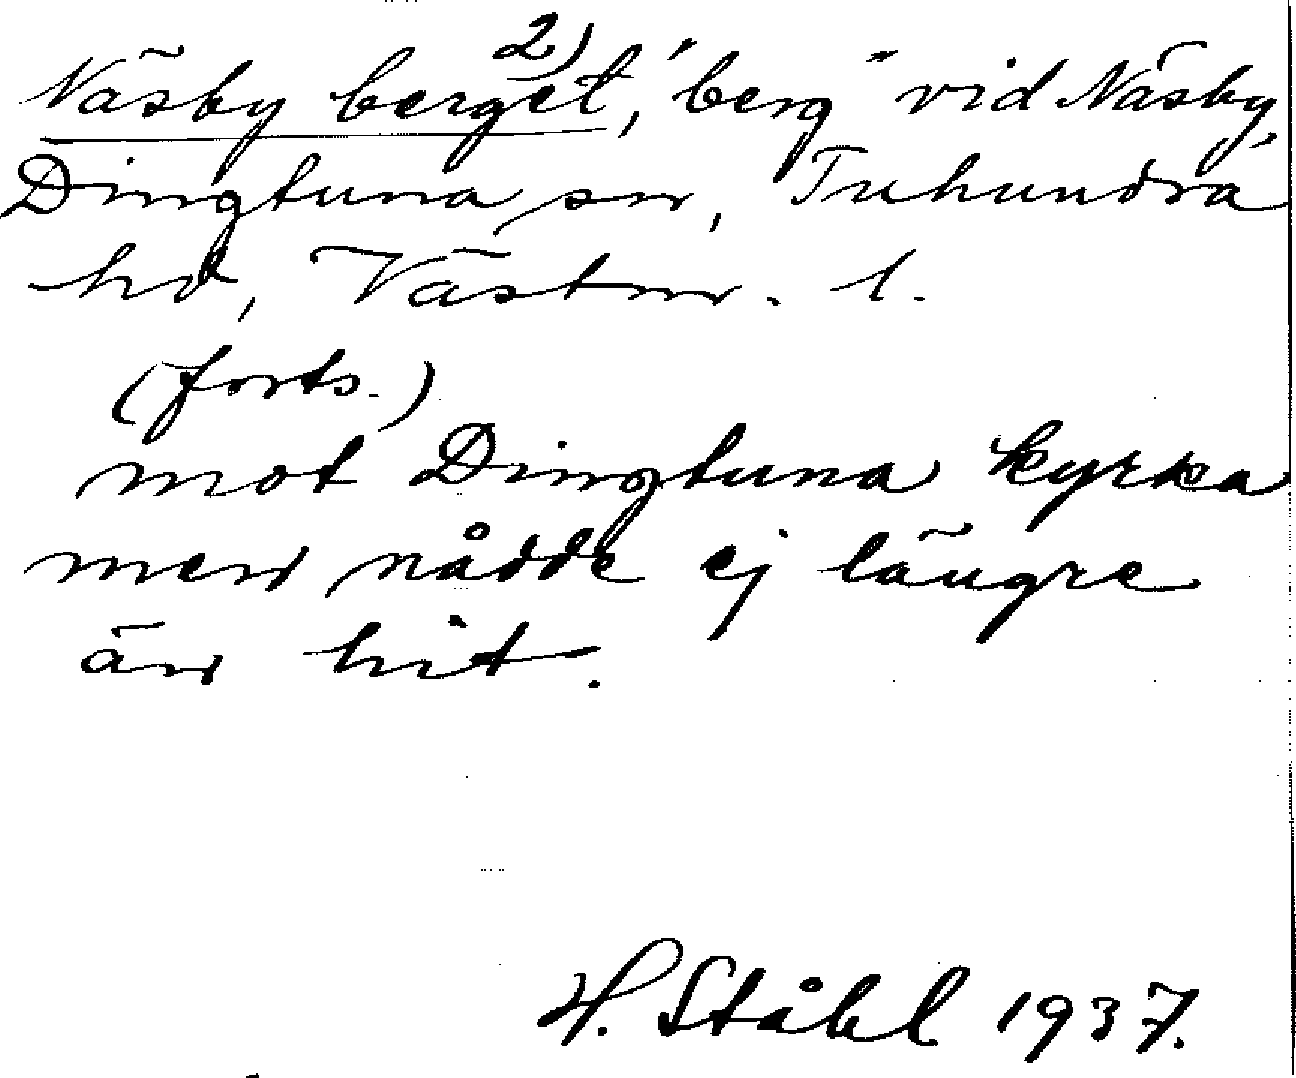 Näsby berget²⁾, "berg" vid Näsby,
Dingtuna sn, Tuhundra
hd, Västm. l.
(forts.)
mot Dingtuna kyrka
men nådde ej längre
än hit.
H. Ståhl 1937.